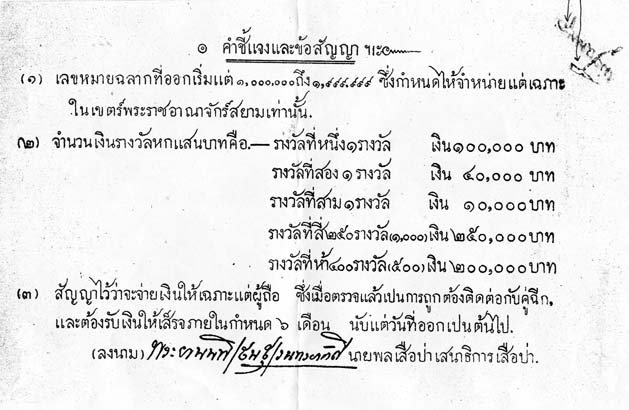 ๑ คำชี้แจงและข้อสัญญา ฯะ๛
(๑) เลขหมายฉลากที่ออกเริ่มแต่ ๑,๐๐๐,๐๐๐ ถึง ๑,๙๙๙,๙๙๙ ซึ่งกำหนดให้จำหน่ายแต่เฉภาะ
ในเขตร์พระราชอาณาจักร์สยามเท่านั้น.
(๒) จำนวนเงินรางวัลหกแสนบาทคือ.— รางวัลที่หนึ่ง ๑ รางวัล เงิน ๑๐๐,๐๐๐ บาท
รางวัลที่สอง ๑ รางวัล เงิน ๔๐,๐๐๐ บาท
รางวัลที่สาม ๑ รางวัล เงิน ๑๐,๐๐๐ บาท
รางวัลที่สี่ ๒๕๐ รางวัล (๑,๐๐๐) เงิน ๒๕๐,๐๐๐ บาท
รางวัลที่ห้า ๔๐๐ รางวัล (๕๐๐) เงิน ๒๐๐,๐๐๐ บาท
(๓) สัญญาไว้ว่าจะจ่ายเงินให้เฉภาะแต่ผู้ถือ ซึ่งเมื่อตรวจแล้วเปนการถูกต้องติดต่อกับคู่ฉีก,
และต้องรับเงินให้เสร็จภายในกำหนด ๖ เดือน นับแต่วันที่ออกเปนต้นไป.
(ลงนาม) พระยานนทิ นายพลเสือป่า เสนาธิการเสือป่า.